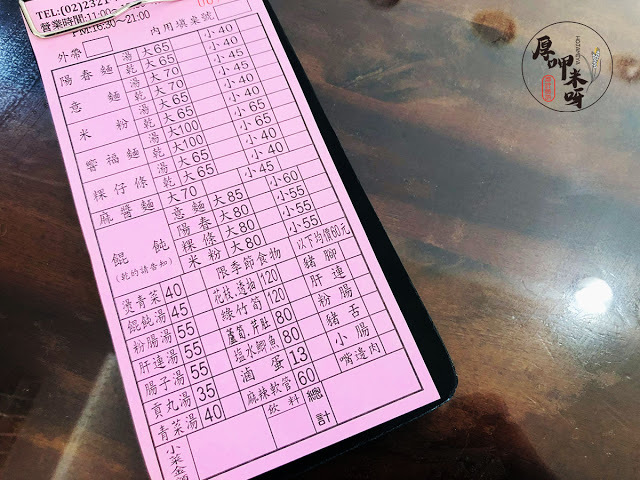 TEL:(02)2321-
營業時間:11:00~
PM:16:30~21:00
外帶 內用填桌號
陽春麵 湯 大65 小40
乾 大65 小40
意麵 湯 大70 小45
乾 大70 小45
米粉 湯 大65 小40
乾 大65 小40
響福麵 湯 大100 小65
乾 大100 小65
粿仔條 湯 大65 小40
乾 大65 小40
麻醬麵 大70 小45
餛飩 (乾的請告知)
意麵 大85 小60
陽春 大80 小55
粿條 大80 小55
米粉 大80 小55
燙青菜 40 限季節食物 以下均價60元
餛飩湯 45 花枝、透抽 120 豬腳
粉腸湯 55 綠竹筍 120 肝連
肝連湯 55 蘆筍、芹肚 80 粉腸
腸子湯 55 塩水鯽魚 80 豬舌
貢丸湯 35 滷蛋 13 小腸
青菜湯 40 麻辣軟管 60 嘴邊肉
小菜金額 飲料 總計
厚呷米呀